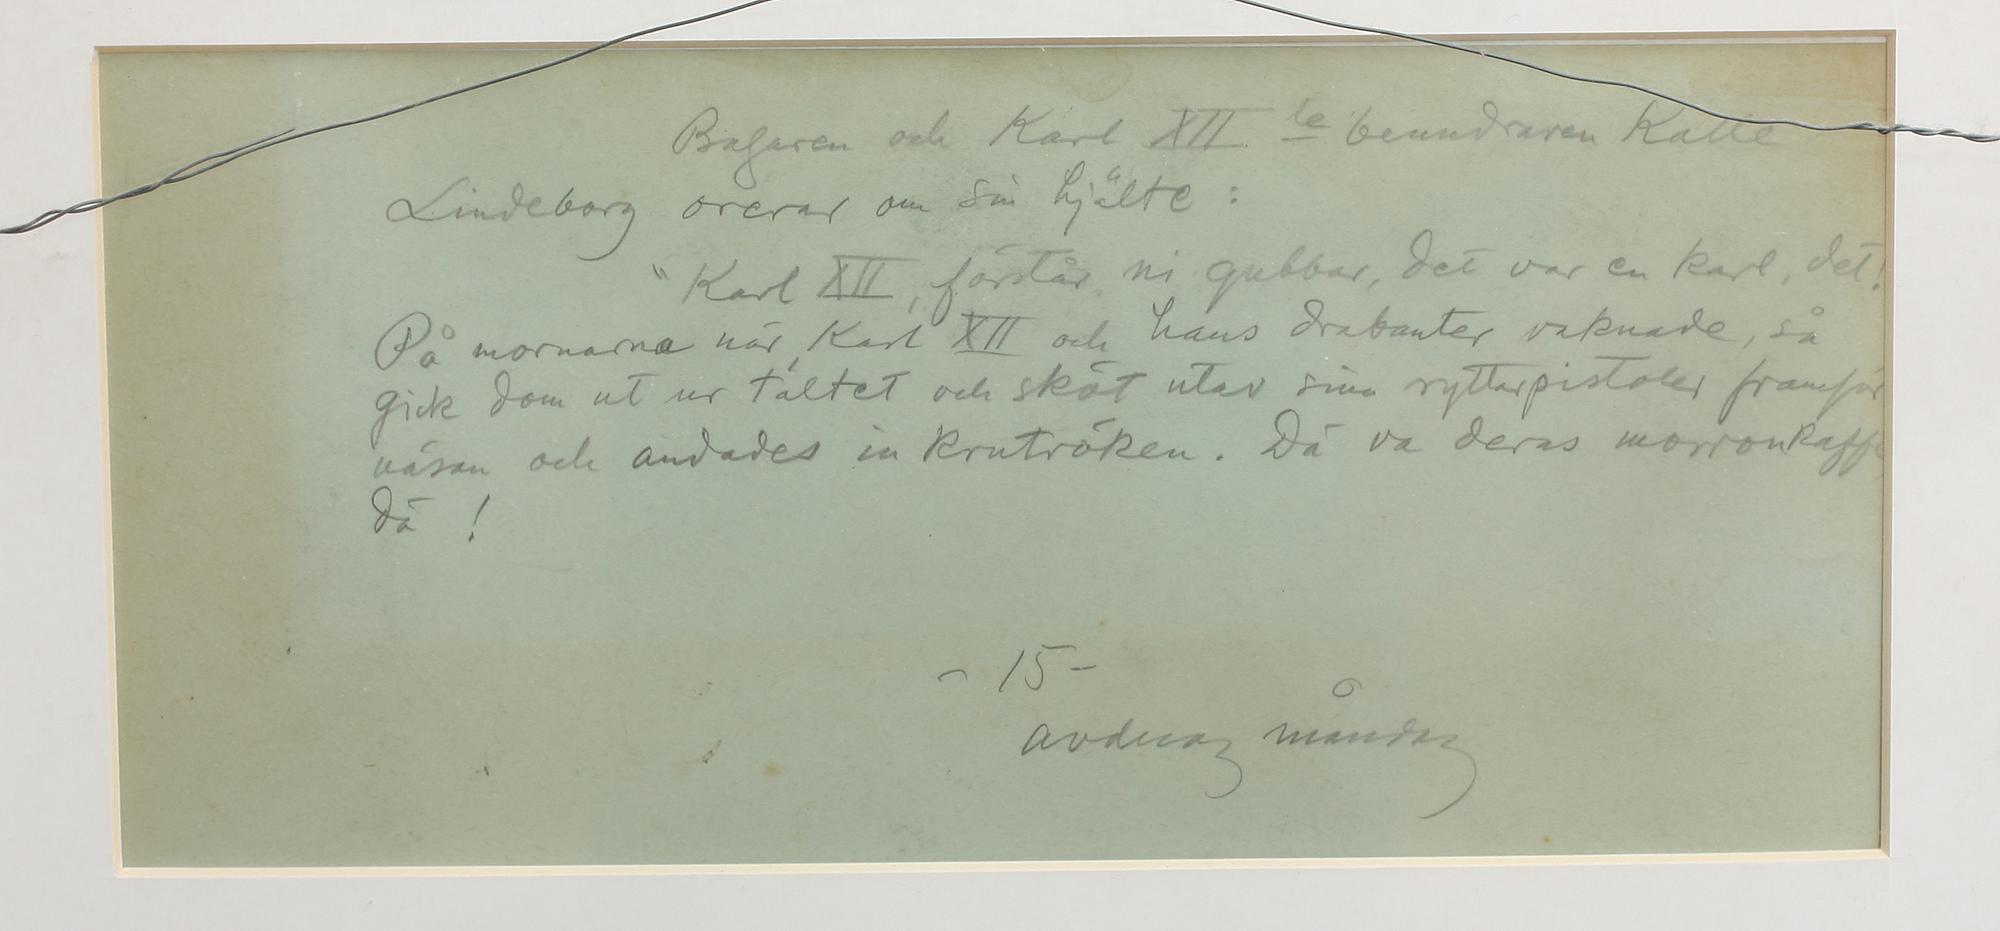 Bagaren och Karl XII te beundraren Kalle
Lindeborg orerar om sin hjälte :
"Karl XII, förstår ni gubbar, det var en karl, det!
På mornarna när Karl XII och hans drabanter vaknade, så
gick dom ut ur tältet och sköt utav sina ryttarpistoler framför
näsan och andades in krutröken. Dä va deras morronkaffe
dä !
- 15 -
måndag